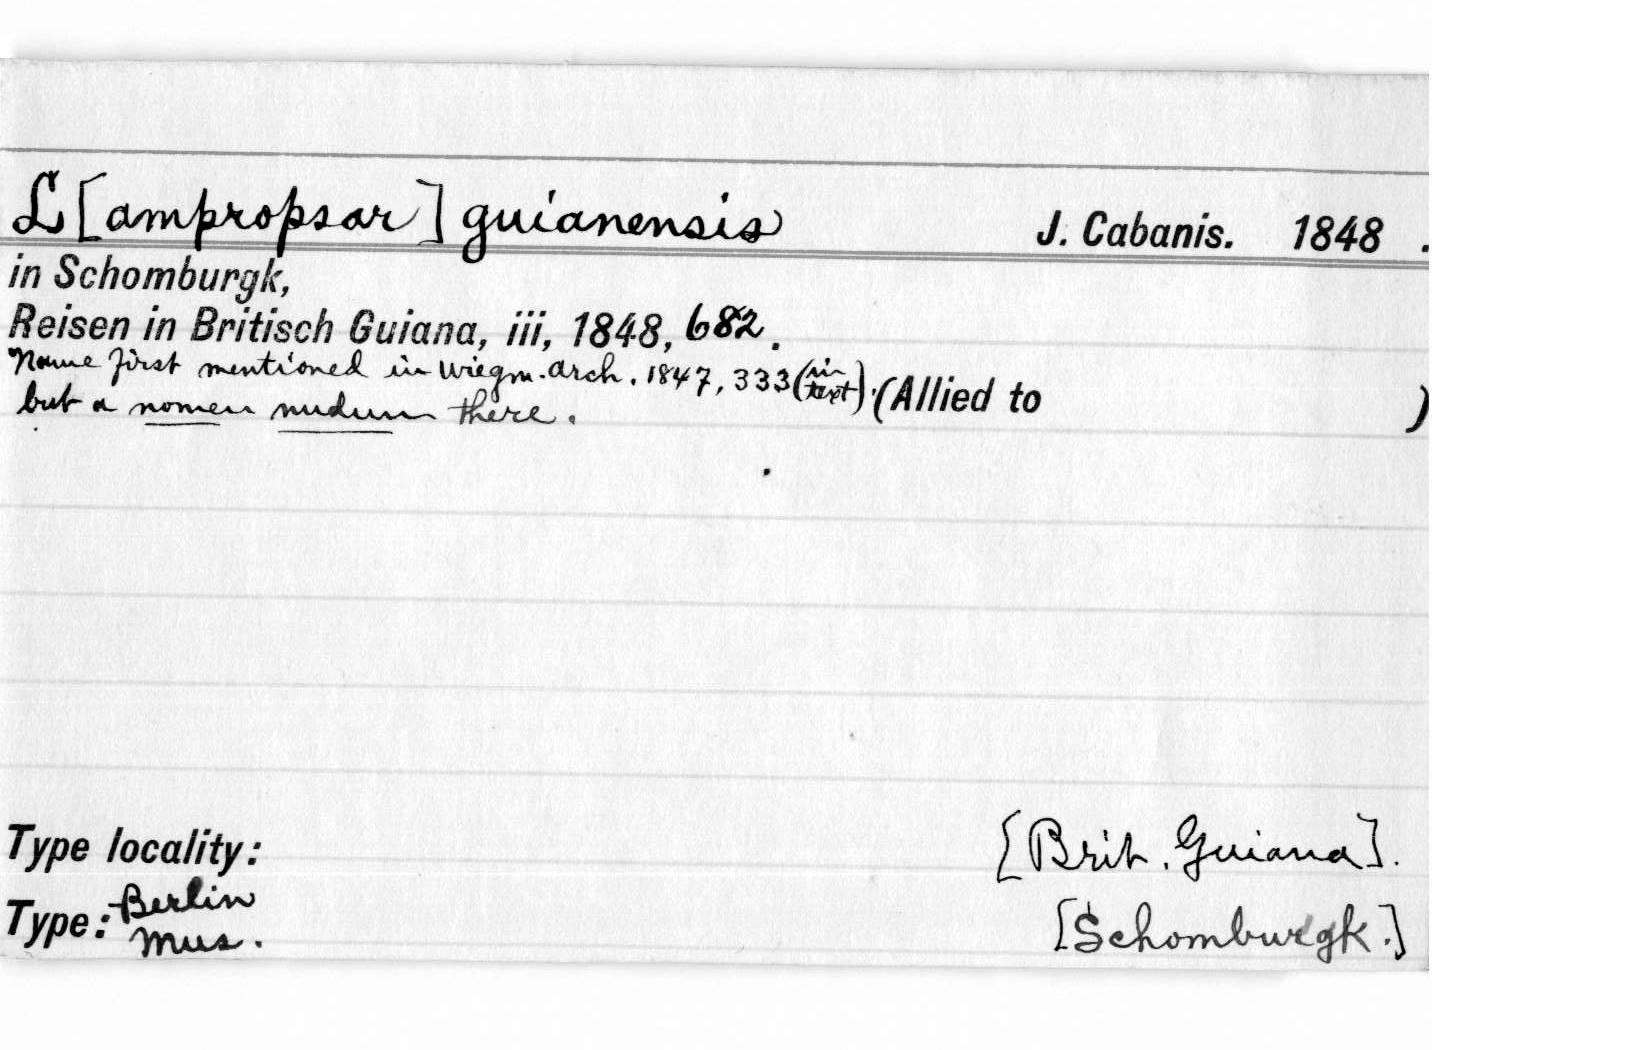 L[ampropsar] guianensis J. Cabanis. 1848 .
in Schomburgk,
Reisen in Britisch Guiana, iii, 1848, 682.
Name first mentioned in Wiegm. Arch. 1847, 333 (in text). (Allied to )
but a nomen nudum there.
Type locality: [Brit. Guiana].
Type: Berlin Mus. [Schomburgk.]